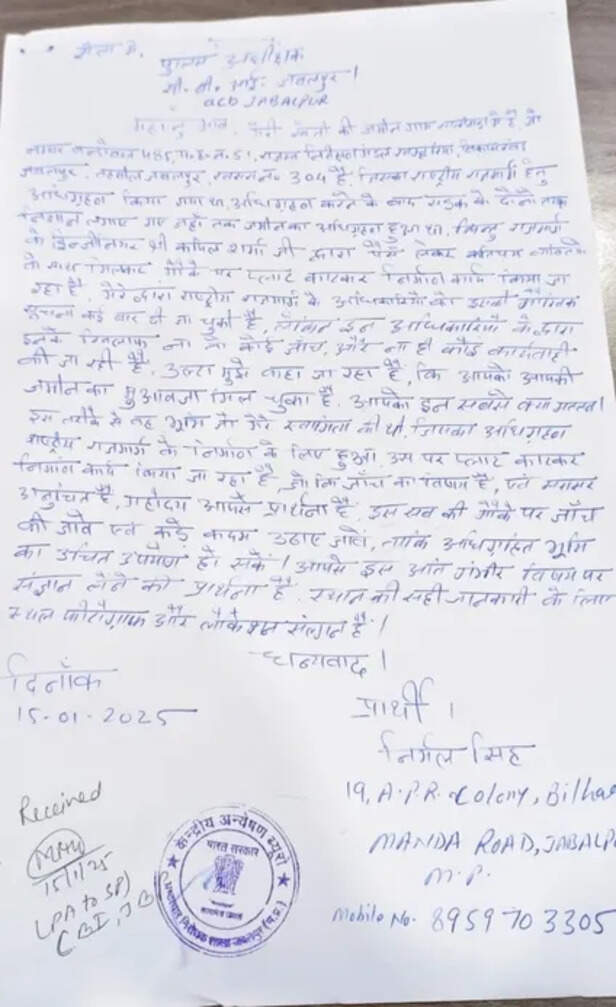 सेवा में,
पुलिस अधीक्षक
सी. बी. आई. जबलपुर।
ACB JABALPUR
महानुभाव, मेरी खेती की जमीन ग्राम में है, जो
485, प.ह.न. 51, राजस्व निरीक्षण मंडल
जबलपुर, तहसील जबलपुर, खसरा नं. 304 है, जिसका राष्ट्रीय राजमार्ग हेतु
अधिग्रहण किया गया था, अधिग्रहण करने के बाद सड़क के दोनों तरफ
निशान लगाए गए जहाँ तक जमीन का अधिग्रहण हुआ था, किन्तु राजमार्ग
के इन्जीनियर श्री कपिल शर्मा जी द्वारा पैसे लेकर कतिपय
के साथ मिलकर मौके पर प्लाट काटकर निर्माण कार्य किया जा
रहा है, मेरे द्वारा राष्ट्रीय राजमार्ग के अधिकारियों को इसकी मौखिक
सूचना कई बार दी जा चुकी है, लेकिन इन अधिकारियों के द्वारा
इनके खिलाफ ना तो कोई जाँच, और ना ही कोई कार्यवाही
की जा रही है, उल्टा मुझे कहा जा रहा है, कि आपको आपकी
जमीन का मुआवजा मिल चुका है, आपका इन सबसे क्या मतलब।
इस तरीके से वह भूमि जो मेरे की थी, जिसका अधिग्रहण
राष्ट्रीय राजमार्ग के निर्माण के लिए हुआ, उस पर प्लाट काटकर
निर्माण कार्य किया जा रहा है, जो कि जाँच का विषय है, एवं सरासर
अनुचित है, महोदय आपसे प्रार्थना है, इस सब की मौके पर जाँच
की जावे एवं कड़े कदम उठाए जावे, ताकि अधिग्रहित भूमि
का उचित उपयोग हो सके। आपसे इस अति गंभीर विषय पर
संज्ञान लेने की प्रार्थना है, स्थान की सही जानकारी के लिए
स्थल फोटोग्राफ और लोकेशन संलग्न है।
धन्यवाद।
दिनाँक
15-01-2025
प्रार्थी।
निर्मल सिंह
19, A.P.R. Colony, Bilha
MANDLA ROAD, JABALP
M.P.
Mobile No. 8959703305
Received
15/1/25
(PA to SP)
CBI, JB
केन्द्रीय अन्वेषण ब्यूरो
भारत सरकार
सत्यमेव जयते
भ्रष्टाचार निरोधक शाखा जबलपुर (म.प्र.)